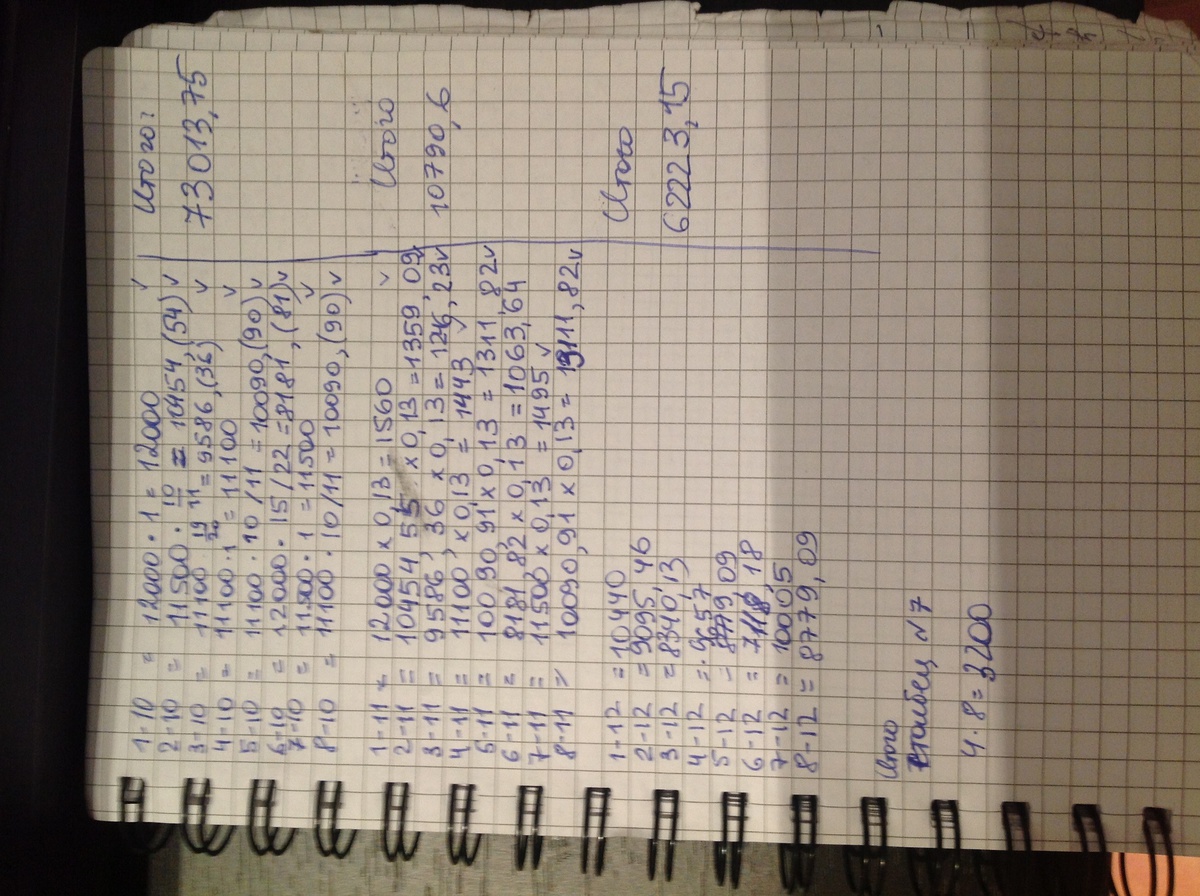 1-10 = 12000 · 1 = 12000 v
2-10 = 11500 · 10/11 = 10454,(54) v
3-10 = 11100 19/22 = 9586,(36) v
4-10 = 11100 · 1 = 11100 v
5-10 = 11100 · 10/11 = 10090,(90) v
6-10 = 12000 · 15/22 = 8181,(81) v
7-10 = 11500 · 1 = 11500 v
8-10 = 11100 · 10/11 = 10090,(90) v
Итого:
73013,75
1-11 = 12000 x 0,13 = 1560 v
2-11 = 10454 55 x 0,13 = 1359 09
3-11 = 9586, 36 x 0,13 = 1246,23 v
4-11 = 11100 x 0,13 = 1443 v
5-11 = 10090,91 x 0,13 = 1311 82 v
6-11 = 8181,82 x 0,13 = 1063,64
7-11 = 11500 x 0,13 = 1495 v
8-11 = 10090,91 x 0,13 = 1311,82 v
Итого
10790,6
1-12 = 10440
2-12 = 9095,46
3-12 = 8340,13
4-12 = 9657
5-12 = 8779,09
6-12 = 7118,18
7-12 = 10005
8-12 = 8779,09
Итого
62223,15
Итого
столбец N7
4 · 8 = 3200